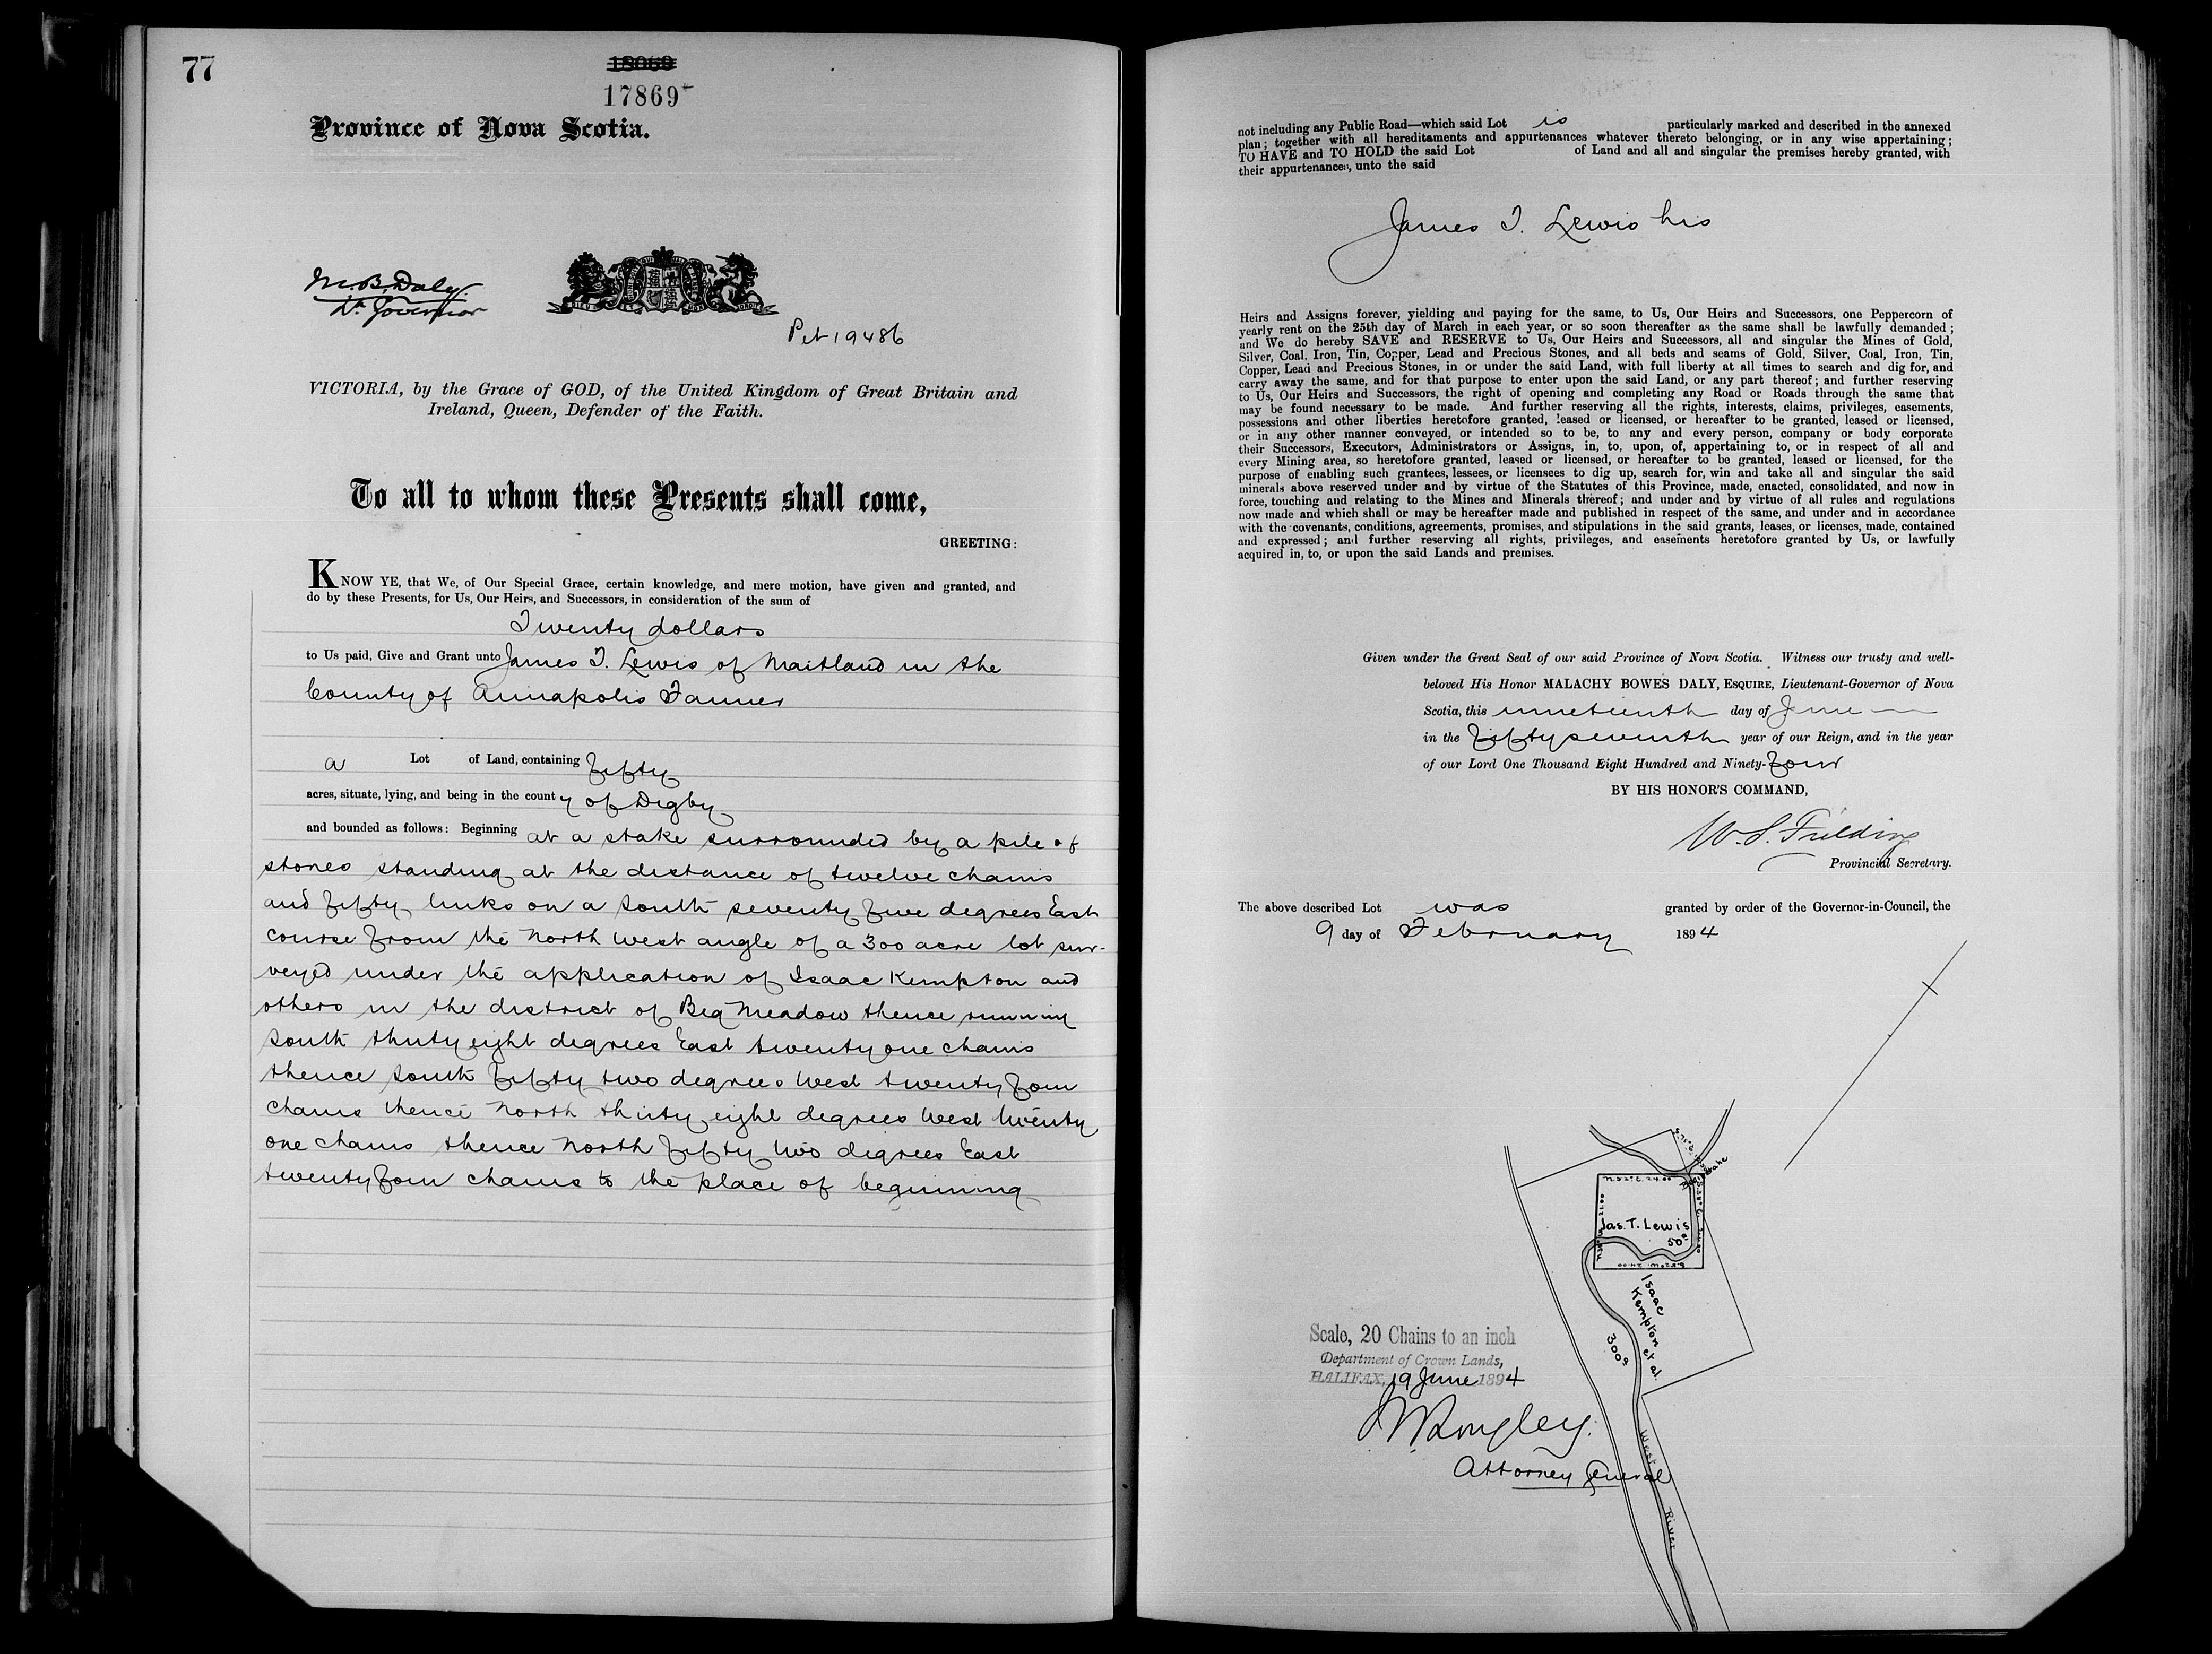 77
18069
17869
Province of Nova Scotia.
M.B. Daly.
Lt. Governor
Pet 19486
VICTORIA, by the Grace of GOD, of the United Kingdom of Great Britain and
Ireland, Queen, Defender of the Faith.
To all to whom these Presents shall come,
GREETING:
KNOW YE, that We, of Our Special Grace, certain knowledge, and mere motion, have given and granted, and
do by these Presents, for Us, Our Heirs, and Successors, in consideration of the sum of
Twenty dollars
to Us paid, Give and Grant unto James T. Lewis of Maitland in the
County of Annapolis
a Lot of Land, containing fifty
acres, situate, lying, and being in the county of Digby
and bounded as follows: Beginning at a stake surrounded by a pile of
stones standing at the distance of twelve chains
and fifty links on a South seventy five degrees East
course from the North West angle of a 300 acre lot sur-
veyed under the application of Isaac Kempton and
others in the district of Big Meadow thence running
South thirty eight degrees East twenty one chains
thence South fifty two degrees West twenty four
chains thence North thirty eight degrees West twenty
one chains thence North fifty two degrees East
twenty four chains to the place of beginning
not including any Public Road—which said Lot is particularly marked and described in the annexed
plan; together with all hereditaments and appurtenances whatever thereto belonging, or in any wise appertaining;
TO HAVE and TO HOLD the said Lot of Land and all and singular the premises hereby granted, with
their appurtenances, unto the said
James T. Lewis his
Heirs and Assigns forever, yielding and paying for the same, to Us, Our Heirs and Successors, one Peppercorn of
yearly rent on the 25th day of March in each year, or so soon thereafter as the same shall be lawfully demanded;
and We do hereby SAVE and RESERVE to Us, Our Heirs and Successors, all and singular the Mines of Gold,
Silver, Coal, Iron, Tin, Copper, Lead and Precious Stones, and all beds and seams of Gold, Silver, Coal, Iron, Tin,
Copper, Lead and Precious Stones, in or under the said Land, with full liberty at all times to search and dig for, and
carry away the same, and for that purpose to enter upon the said Land, or any part thereof; and further reserving
to Us, Our Heirs and Successors, the right of opening and completing any Road or Roads through the same that
may be found necessary to be made. And further reserving all the rights, interests, claims, privileges, easements,
possessions and other liberties heretofore granted, leased or licensed, or hereafter to be granted, leased or licensed,
or in any other manner conveyed, or intended so to be, to any and every person, company or body corporate
their Successors, Executors, Administrators or Assigns, in, to, upon, of, appertaining to, or in respect of all and
every Mining area, so heretofore granted, leased or licensed, or hereafter to be granted, leased or licensed, for the
purpose of enabling such grantees, lessees, or licensees to dig up, search for, win and take all and singular the said
minerals above reserved under and by virtue of the Statutes of this Province, made, enacted, consolidated, and now in
force, touching and relating to the Mines and Minerals thereof; and under and by virtue of all rules and regulations
now made and which shall or may be hereafter made and published in respect of the same, and under and in accordance
with the covenants, conditions, agreements, promises, and stipulations in the said grants, leases, or licenses, made, contained
and expressed; and further reserving all rights, privileges, and easements heretofore granted by Us, or lawfully
acquired in, to, or upon the said Lands and premises.
Given under the Great Seal of our said Province of Nova Scotia. Witness our trusty and well-
beloved His Honor MALACHY BOWES DALY, ESQUIRE, Lieutenant-Governor of Nova
Scotia, this nineteenth day of June
in the fifty seventh year of our Reign, and in the year
of our Lord One Thousand Eight Hundred and Ninety-four
BY HIS HONOR'S COMMAND,
W. S. Fielding
Provincial Secretary.
The above described Lot was granted by order of the Governor-in-Council, the
9 day of February 1894
N 52° E. 24.00
Jas. T. Lewis
50 a
S 52° W. 24.00
Isaac
Kempton
et al.
300 a
Scale, 20 Chains to an inch
Department of Crown Lands,
HALIFAX, 19 June 1894
J W Longley.
Attorney General
West
River